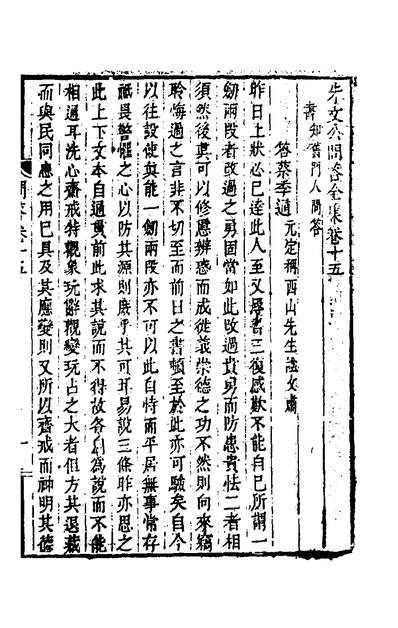 朱文公問答全集卷十五
書 知舊門人問答
答蔡季通 元定稱西山先生諡文肅
昨日上狀必已達此人至又辱書三復感歎不能自已所謂一
劒兩段者改過之勇固當如此改過貴勇而防患貴怯二者相
須然後真可以修慝辨惑而成徙義崇德之功不然則向來竊
聆悔過之言非不切至而前日之書頓至於此亦可驗矣自今
以往設使真能一劒兩段亦不可以此自恃而平居無事常存
祗畏警懼之心以防其源則庶乎其可耳易說三條昨亦思之
此上下文本自通貫前此求其說而不得故各自為說而不能
相通耳洗心齋戒特觀象玩辭觀變玩占之大者但方其退藏
而與民同患之用已具及其應變則又所以齋戒而神明其德
問答卷十五
一